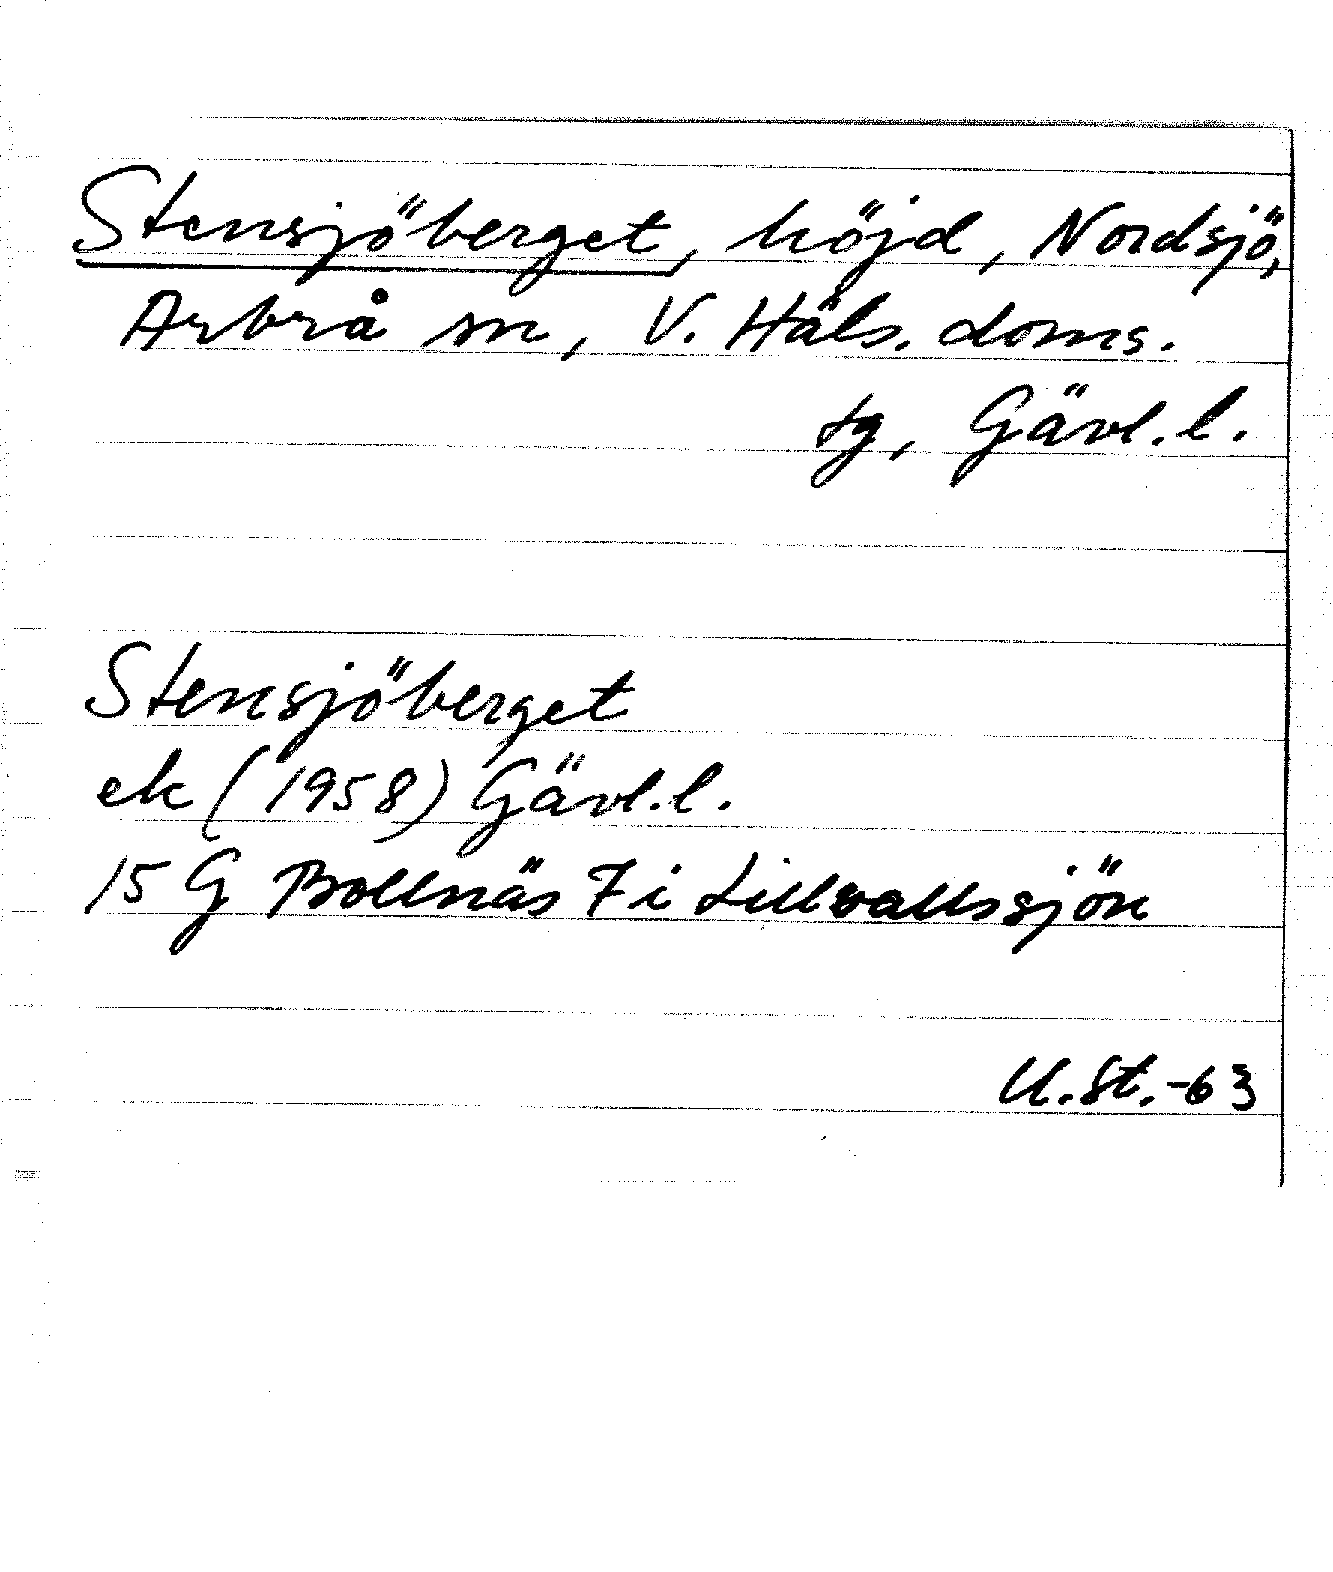 Stensjöberget, höjd, Nordsjö,
Arbrå sn, V. Häls. doms.
tg, Gävl. l.
Stensjöberget
ek (1958) Gävl. l.
15 G Bollnäs 7 i Lillvallssjön
U. St. -63